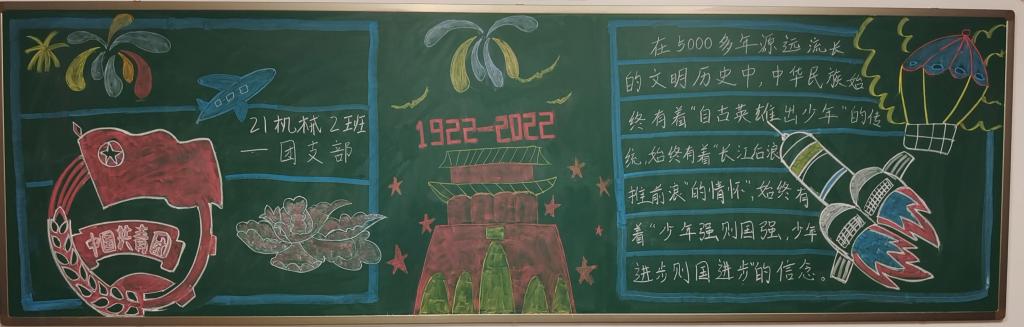 21机械2班
—团支部
中国共青团
1922-2022
在5000多年源远流长
的文明历史中，中华民族始
终有着“自古英雄出少年”的传
统，始终有着“长江后浪
推前浪”的情怀”，始终有
着“少年强则国强，少年
进步则国进步”的信念。